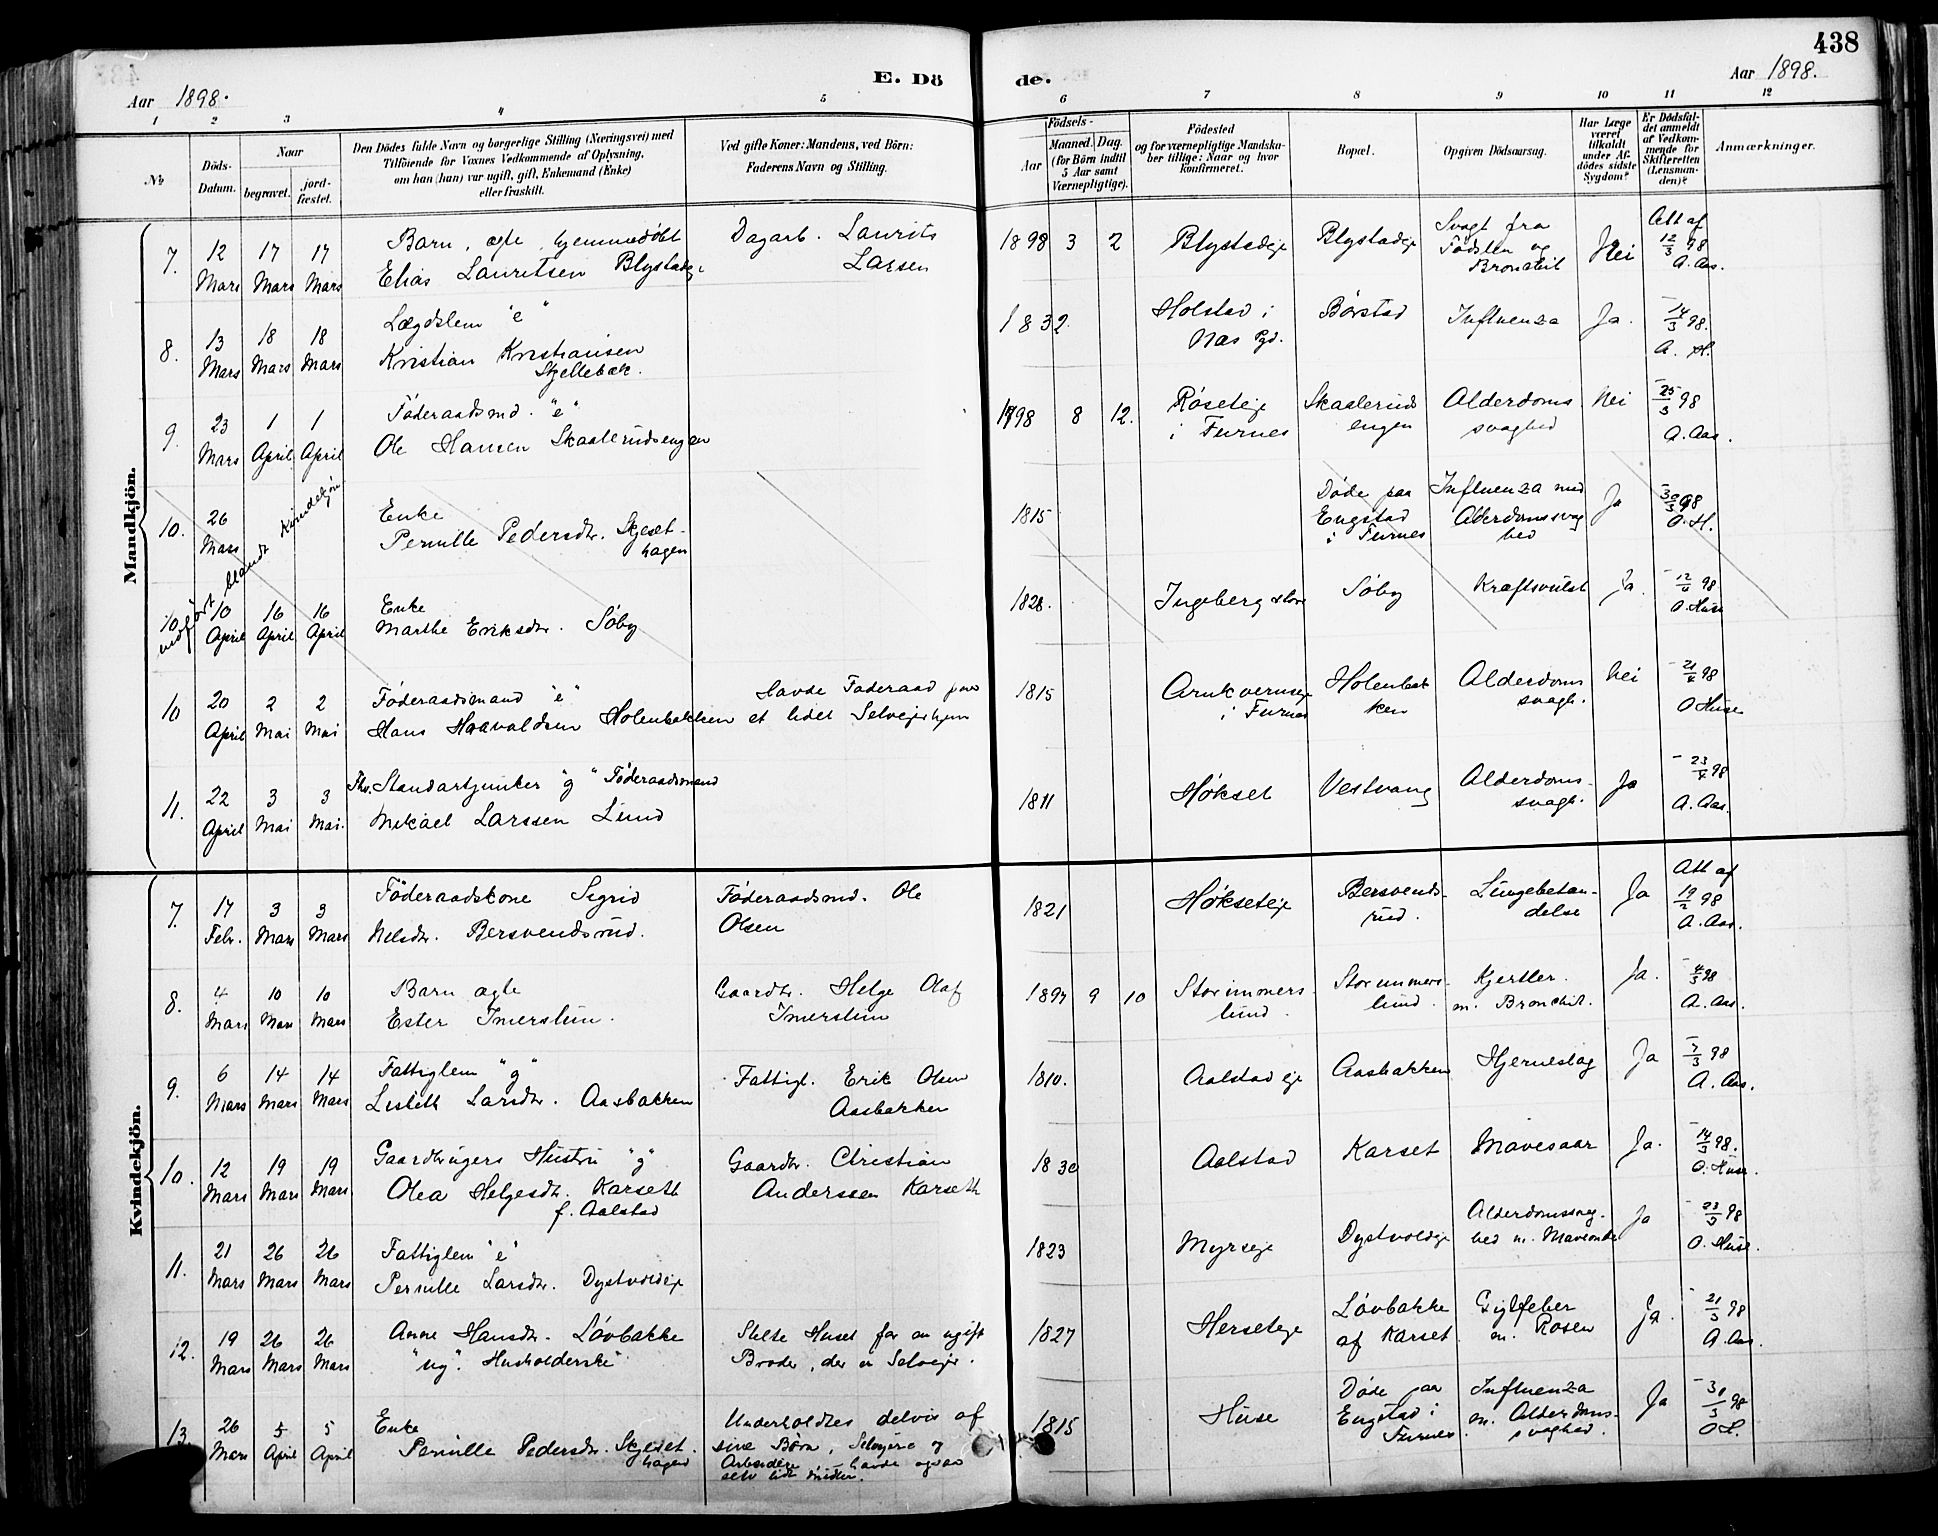 438
E. Dö de.
Aar 1898.
Aar 1898.
1 2 3 4 5 6 7 8 9 10 11 12
№
Döds-Datum.
Naar
begravet.
jordfæstet.
Den Dödes fulde Navn og borgerlige Stilling (Næringsvei) med
Tilföiende for Voxnes Vedkommende af Oplysning,
om han (hun) var ugift, gift, Enkemand (Enke)
eller fraskilt.
Ved gifte Koner: Mandens, ved Börn:
Faderens Navn og Stilling.
Födsels-
Aar
Maaned. Dag.
(for Börn indtil
5 Aar samt
Værnepligtige).
Födested
og for værnepligtige Mandskaber tillige: Naar og hvor
konfirmeret.
Bopæl.
Opgiven Dödsaarsag.
Har Læge
været
tilkaldt
under Afdödes sidste
Sygdom?
Er Dödsfaldet anmeldt
af Vedkommende for
Skifteretten
(Lensmanden)?
Anmærkninger.
Mandkjön.
7. 12 Mars 17 Mars 17 Mars
Barn, ægte, hjemmedöbt
Elias Lauritsen Blystadeje
Dagarb. Laurits
Larsen
1898 3 2 Blystadeje Blystadeje
Svagt fra
Fødslen og
Bronchit
Nei
Att af
12/3 98
A. Aas.
8. 13 Mars 18 Mars 18 Mars
Lægdslem "e"
Kristian Kristiansen
Skjellebæk.
1832. Holstad i
Næs Pgd.
Børstad Influenza Ja.
14/3 98.
A. H.
9. 23 Mars 1 April 1 April
Föderaadsmd. "e"
Ole Hansen Skaalerudsengen
1798 8 12. Røseteje
i Furnes
Skaalerudsengen
Alderdoms
svaghed
Nei
25/3 98
A. Aas.
10. 26 Mars
indført blandt Kvindekjøn
Enke
Pernille Pedersdtr. Skjeset-
hagen
1815
Døde paa
Engstad
i Furnes
Influenza med
Alderdomssvag
hed
Ja
30/3 98
O. H.
10 10 April 16 April 16 April
Enke
Marthe Eriksdtr. Söby
1828. Ingeberg store Söby Kræftsvulst Ja.
12/4 98
O. Huse
10 20 April 2 Mai 2 Mai
Föderaadsmand "e"
Hans Haavaldsen Holenbakken
Havde Føderaad paa
et lidet Selveierhjem
1815 Arnkvernseje
i Furnes
Holenbakken
Alderdoms
svagh.
Nei
21/4 98
O Huse
11. 22 April 3 Mai 3 Mai.
Fhv. Standartjunker "g" Föderaadsmand
Mikael Larssen Lund
1811 Høkset Vestvang
Alderdoms-
svagh.
Ja
23/4 98
A. Aas.
Kvindekjön.
7. 17 Febr. 3 Mars 3 Mars
Föderaadskone Sigrid
Nilsdtr. Bersvendsrud.
Føderaadsmd. Ole
Olsen
1821 Høkseteje
Bersvends-
rud.
Lungebetæn-
delse
Ja
Att af
19/2 98
A. Aas.
8. 4 Mars 10 Mars 10 Mars
Barn ægte
Ester Imerslun.
Gaardbr. Helge Olaf
Imerslun
1897 9 10
Storimmers-
lund.
Storimmers-
lund.
Kjertler.
m. Bronchit.
Ja.
4/3 98
A. Aas.
9. 6 Mars 14 Mars 14 Mars
Fattiglem "g"
Lisbeth Larsdtr. Aasbakken
Fattigl. Erik Olsen
Aasbakken
1810. Aalstadeje Aasbakken Hjerneslag Ja
7/3 98
A. Aas.
10. 12 Mars 19 Mars 19 Mars
Gaardbrugers Hustru "g"
Olea Helgesdtr. Karseth
f. Aalstad
Gaardbr. Christian
Anderssen Karseth
1830 Aalstad Karset Mavesaar Ja.
14/3 98.
O. Huse.
11. 21 Mars 26 Mars 26 Mars
Fattiglem "e"
Pernille Larsdtr. Dystvoldeje
1823 Myrseje Dystvoldeje
Alderdomssvag-
hed m. Maveonde
Ja
23/3 98
O. Huse.
12. 19 Mars 26 Mars 26 Mars
Anne Hansdtr. Løvbakke
"ug". Husholderske
Stelte Huset for en ugift
Broder, der er Selveier.
1827 Herseteje
Løvbakke
af Karset
Gigtfeber
m. Rosen
Ja.
21/3 98
A. Aas.
13. 26 Mars 5 April 5 April
Enke
Pernille Pedersdtr. Skjeset-
hagen
Underholdtes delvis af
sine Børn, Selveiere og
Arbeidere, – havde ogsaa
selv lidt Midler.
1815 Huse
Døde paa
Engstad i
Furnes.
Influenza
m. Alderdoms-
svaghed.
Ja
30/3 98
O H.